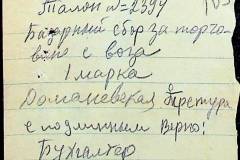 Талон №=2394
Базарный сбор за торго-
влю с воза
1 марка
Доманевская Претура
с подлинным верно:
Бухгалтер